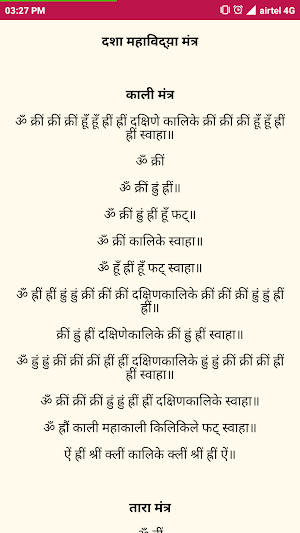 03:27 PM
airtel 4G
दशा महाविद्य़ा मंत्र
काली मंत्र
ॐ क्रीं क्रीं क्रीं हूँ हूँ ह्रीं ह्रीं दक्षिणे कालिके क्रीं क्रीं क्रीं हूँ हूँ ह्रीं
ह्रीं स्वाहा॥
ॐ क्रीं
ॐ क्रीं हुं ह्रीं॥
ॐ क्रीं हुं ह्रीं हूँ फट्॥
ॐ क्रीं कालिके स्वाहा॥
ॐ हूँ ह्रीं हूँ फट् स्वाहा॥
ॐ ह्रीं ह्रीं हुं हुं क्रीं क्रीं क्रीं दक्षिणकालिके क्रीं क्रीं क्रीं हुं हुं ह्रीं
ह्रीं॥
क्रीं हुं ह्रीं दक्षिणेकालिके क्रीं हुं ह्रीं स्वाहा॥
ॐ हुं हुं क्रीं क्रीं क्रीं ह्रीं ह्रीं दक्षिणकालिके हुं हुं क्रीं क्रीं क्रीं ह्रीं
ह्रीं स्वाहा॥
ॐ क्रीं क्रीं क्रीं हुं हुं ह्रीं ह्रीं दक्षिणकालिके स्वाहा॥
ॐ ह्रौं काली महाकाली किलिकिले फट् स्वाहा॥
ऐं ह्रीं श्रीं क्लीं कालिके क्लीं श्रीं ह्रीं ऐं॥
तारा मंत्र